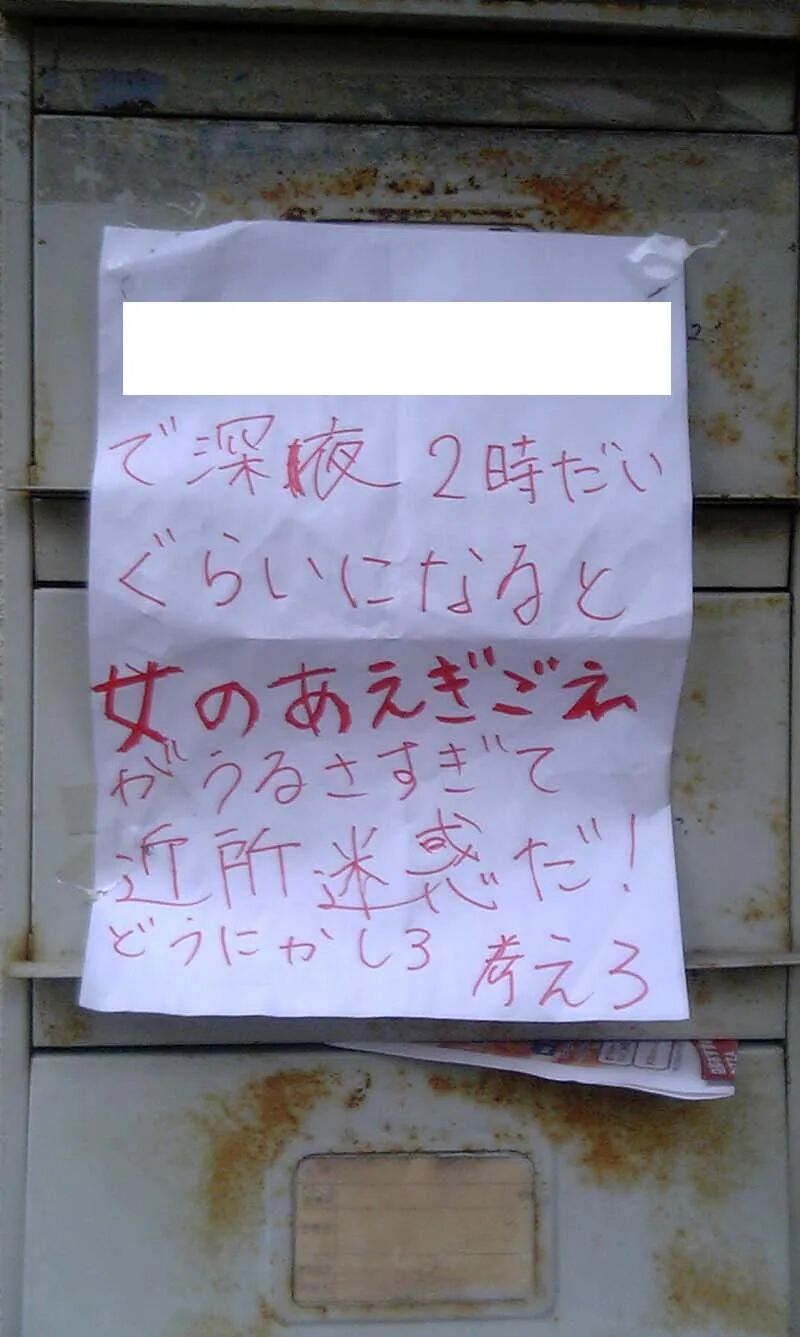 で深夜 2時だい
ぐらいになると
女のあえぎごえ
がうるさすぎて
近所迷惑だ!
どうにかしろ 考えろ